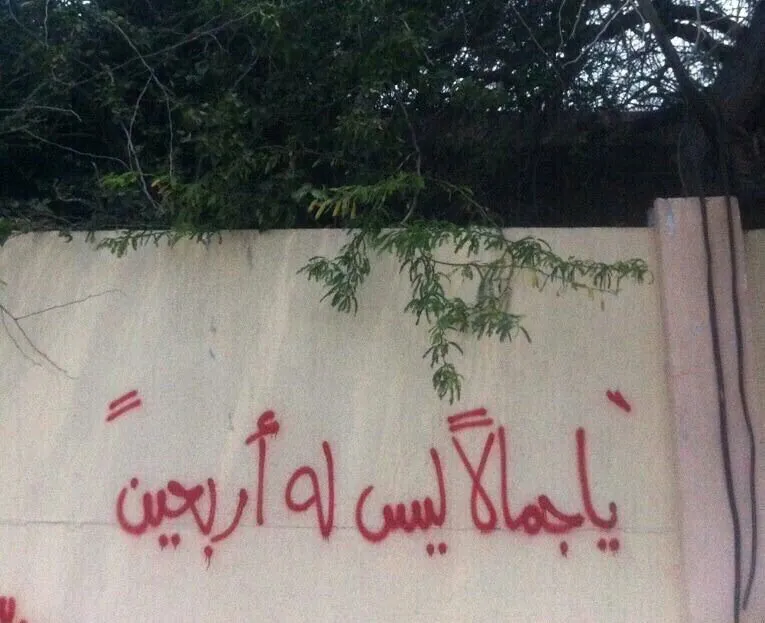 " يا جمالاً ليس له أربعين "